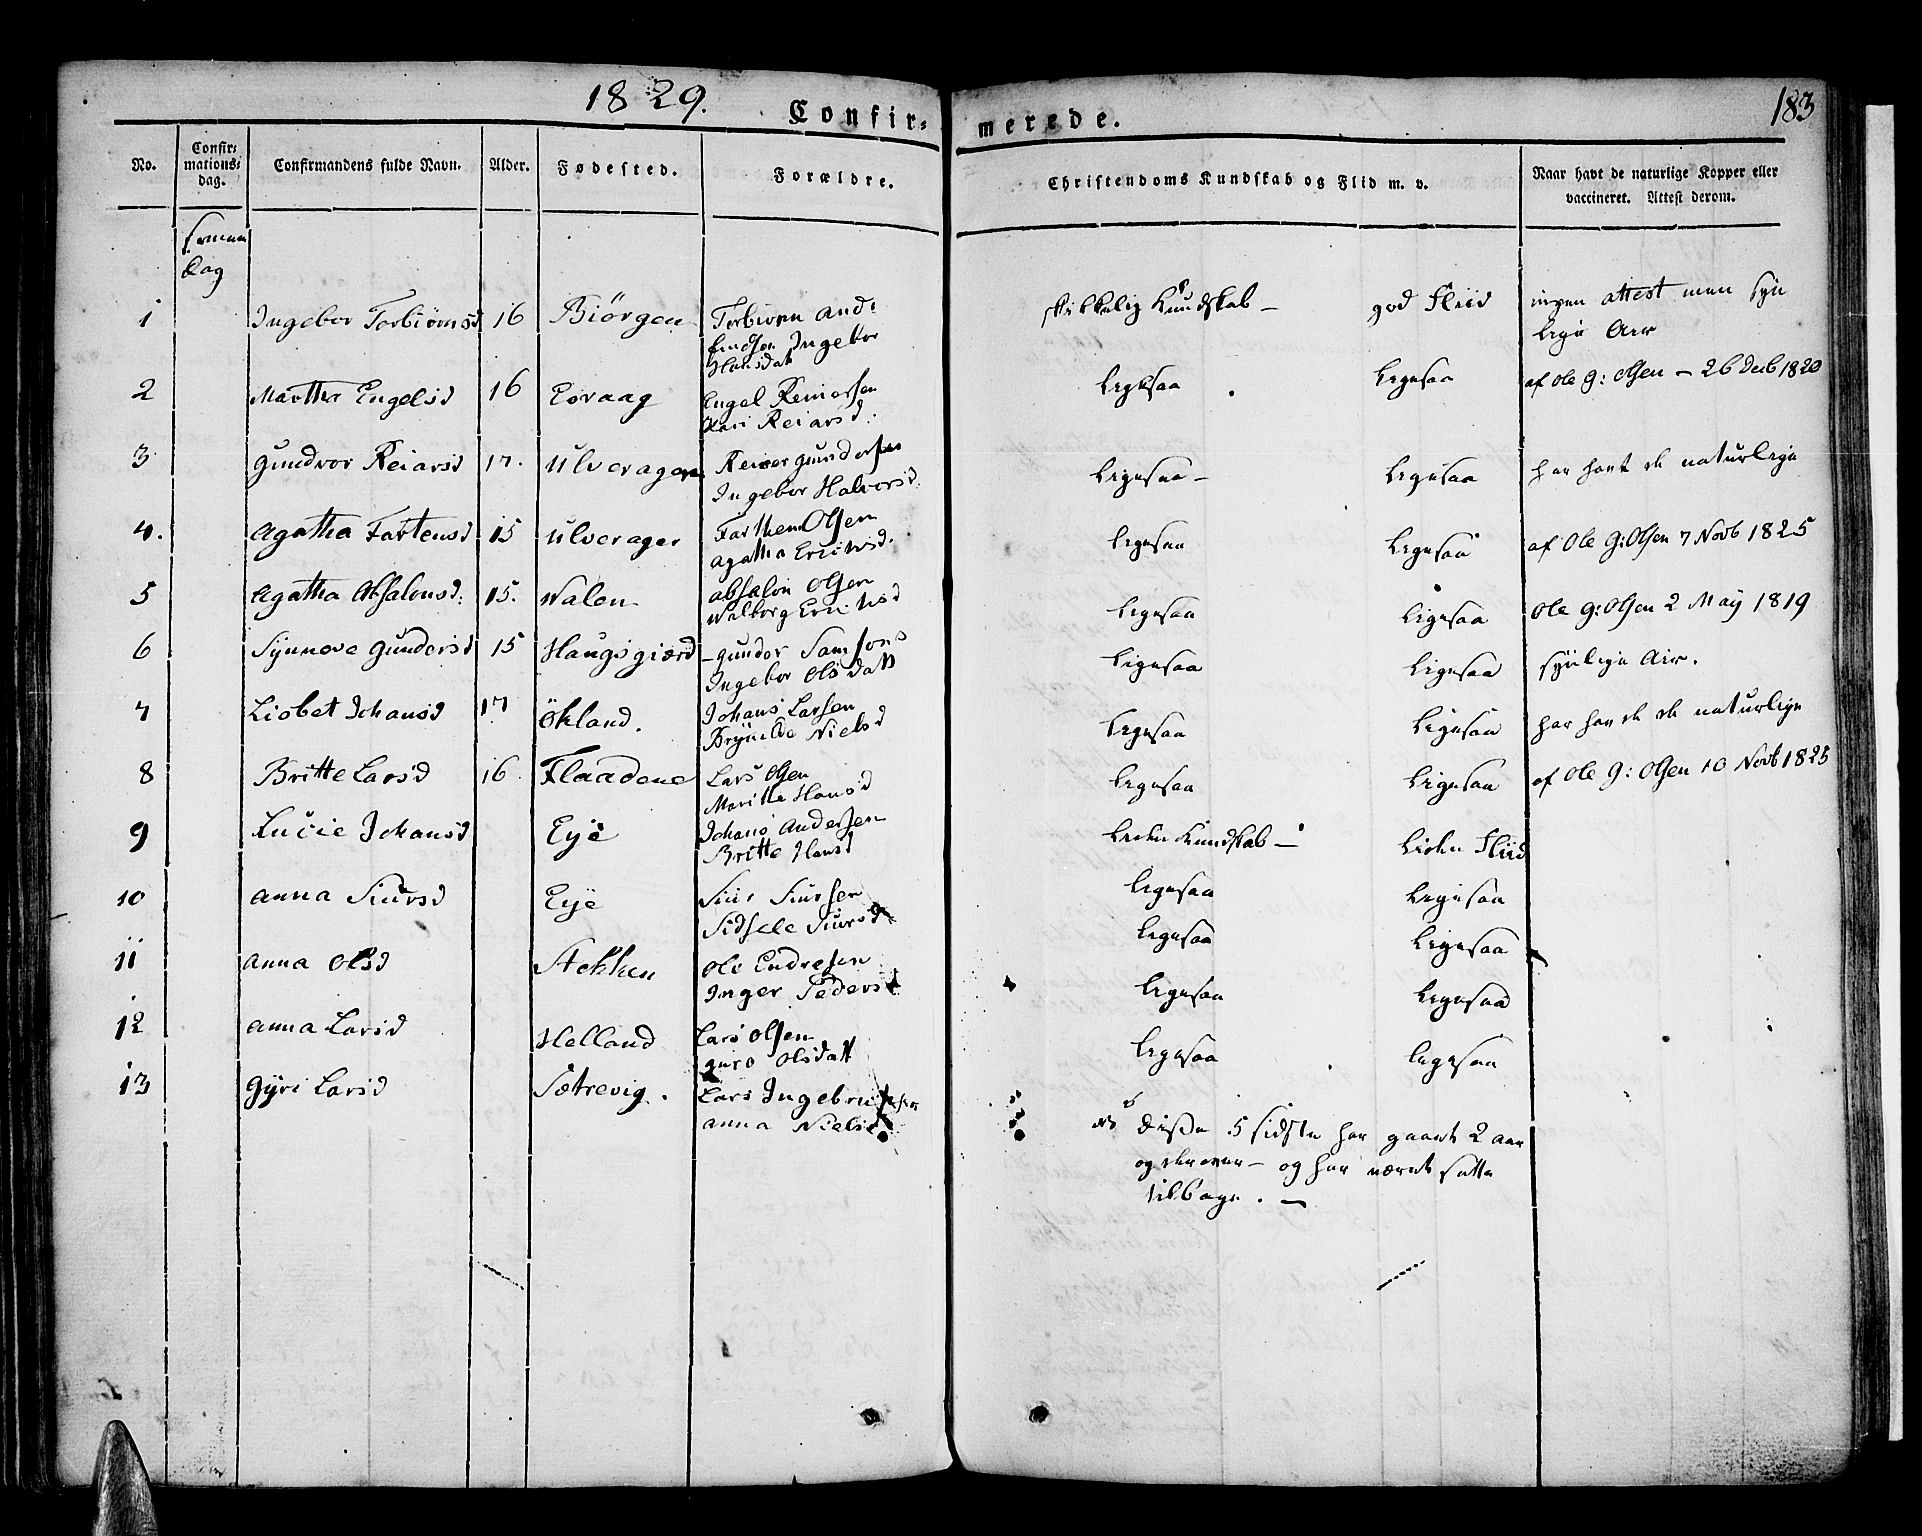 1829.
Confir=
merede.
183
No.
Confir=
mations=
dag.
Confirmandens fulde Navn.
Alder.
Fødested.
Forældre.
Christendoms Kundskab og Flid m. v.
Naar havt de naturlige Kopper eller
vaccineret. Attest derom.
samme
Dag
1 Ingebor Torbiörnsd 16 Biörgen Torbiorn And:
Hansdatt Ingebor
skikkelig Kundskab – god Fliid ingen attest men syn
lige Ar
2 Marthe Engelsd 16 Eoraag Engel Reiersen
Kari Reiarsd:
Ligesaa Ligesaa af Ole G: Olsen – 26 Decb 1820
3 Gundvor Reiarsd 17. Ulverager Reier Gundersen
Ingebor Halversd.
Ligesaa – Ligesaa har havt de naturlige
4. Agatha Fartensd 15 Ulverager Farthen Olsen
Agatha Ericksd.
Ligesaa Ligesaa af Ole G: Olsen 7 Novb 1825
5 Agatha Absalonsd: 15. Walen Absalon Olsen
Walborg Ericksd
Ligesaa Ligesaa Ole G: Olsen 2 May 1819
6 Synneve Gundersd 15 Haugsgiærd – Gunder Samsons
Ingebor Olsdatt
Ligesaa Ligesaa synlige Ar.
7 Lisbet Johansd 17 Ökland. Johans Larsen
Brynilde Nielsd
Ligesaa Ligesaa har havde de naturlige
8 Britte Larsd 16. Flaadene Lars Olsen
Maritte Hansd
Ligesaa Ligesaa af Ole G: Olsen 10 Novb 1825
9 Lucie Johansd Eye Johans Andersen
Britte Hansd
Liden Kundskab – Liden Fliid
10 Anna Siursd Eye Siur Siursen
Sidsele Siursd
Ligesaa Ligesaa
11 Anna Olsd Stokken Ole Endresen
Inger Pedersd
Ligesaa Ligesaa
12 Anna Larsd Helland Lars Olsen
Guro Olsdatt
Ligesaa Ligesaa
13 Gyri Larsd Sætrevig. Lars Ingebrictsen
Anna Nielsd
Ligesaa Ligesaa
NB Disse 5 sidste har gaaet 2 aar
og derover – og har været satte
tilbage. –